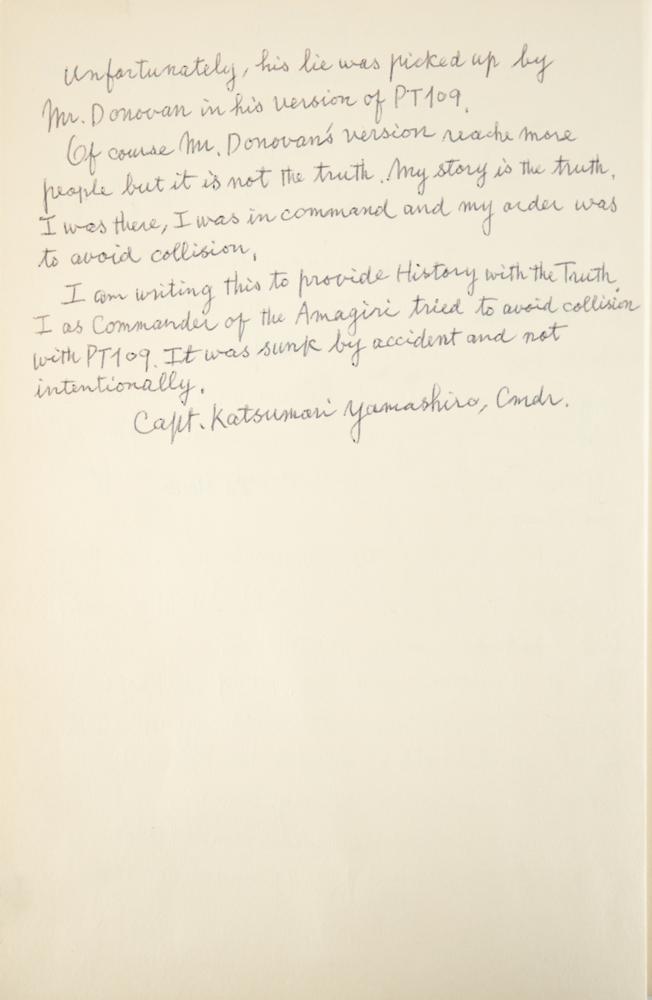 Unfortunately, his lie was picked up by
Mr. Donovan in his version of PT109.
Of course Mr. Donovan's version reache more
people but it is not the truth. My story is the truth.
I was there, I was in command and my order was
to avoid collision.
I am writing this to provide History with the Truth.
I as Commander of the Amagiri tried to avoid collision
with PT109. It was sunk by accident and not
intentionally.
Capt. Katsumori Yamashiro, Cmdr.